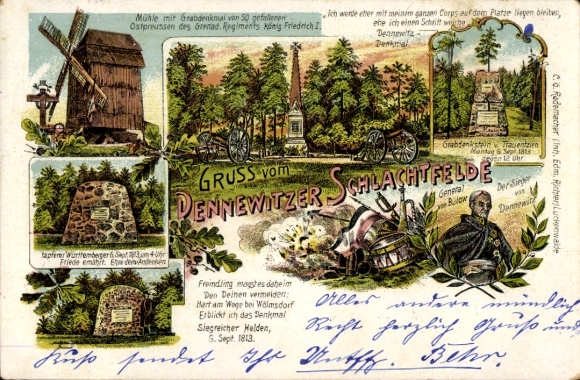 Mühle mit Grabdenkmal von 50 gefallenen
Ostpreussen des Grenad. Regiments König Friedrich I.
„Ich werde eher mit meinem ganzen Corps auf dem Platze liegen bleiben,
ehe ich einen Schritt weiche
Dennewitz-
Denkmal.
Grabdenkstein v. Trauentzien
Montag 6. Sept. 1813
gegen 12 Uhr.
C. G. Rademacher Inh. Edm. Richter, Luckenwalde
GRUSS vom
DENNEWITZER SCHLACHTFELDE
General
von Bülow
Der Sieger
von
Dennewitz
tapferer Württemberger 6. Sept. 1813 um 4 Uhr
Friede ernährt. Ehre dem Andenken
Fremdling magst es daheim
Den Deinen vermelden:
Hart am Wege bei Wölmsdorf
Erblickt ich das Denkmal
Siegreicher Helden,
6. Sept. 1813.
Alles andere mündlich
Recht herzlich Gruß und
Kuß sendet Ihr Behr.